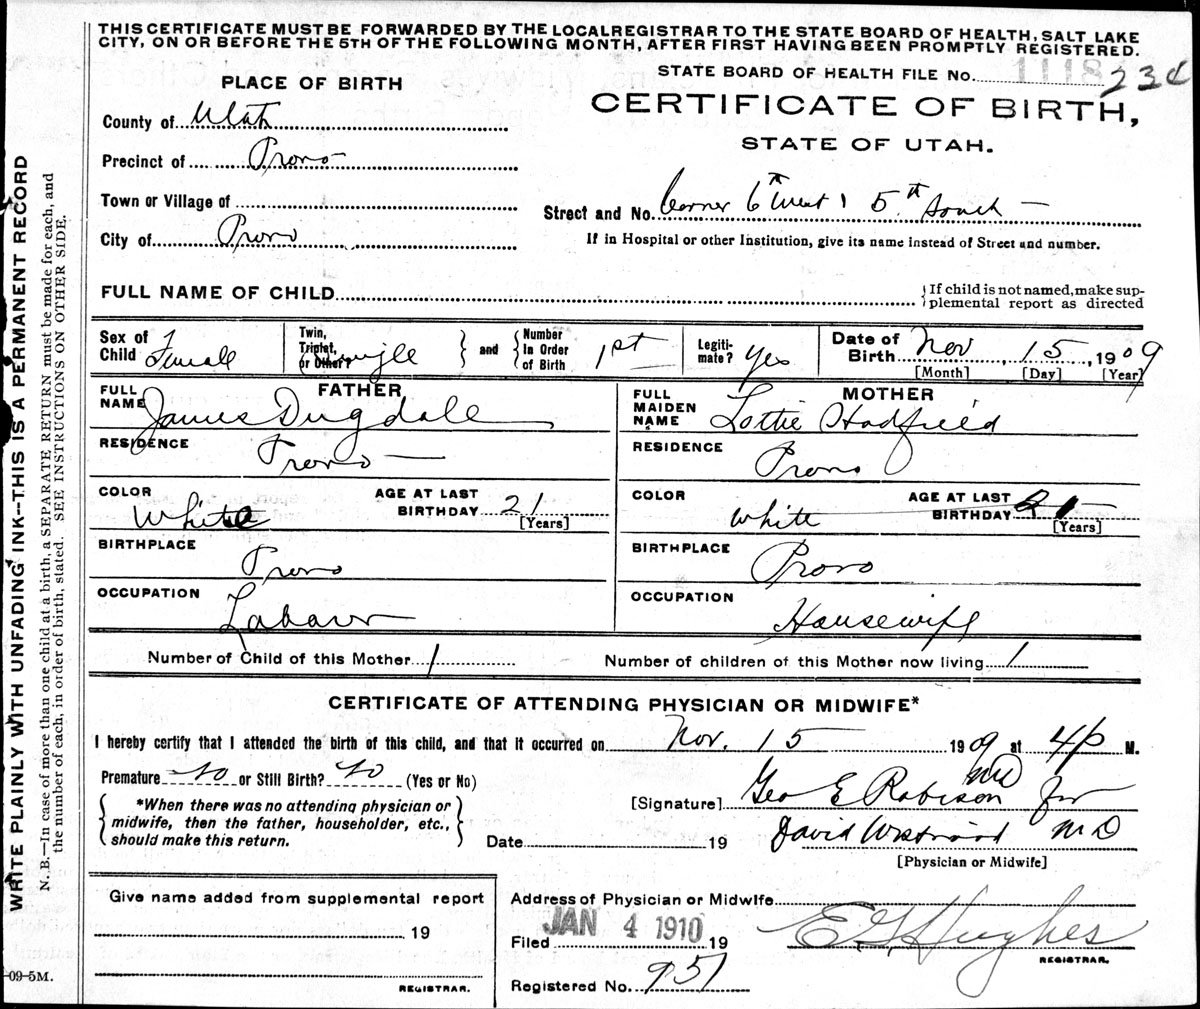 THIS CERTIFICATE MUST BE FORWARDED BY THE LOCAL REGISTRAR TO THE STATE BOARD OF HEALTH, SALT LAKE
CITY, ON OR BEFORE THE 5TH OF THE FOLLOWING MONTH, AFTER FIRST HAVING BEEN PROMPTLY REGISTERED.
STATE BOARD OF HEALTH FILE No. 234
PLACE OF BIRTH
CERTIFICATE OF BIRTH,
STATE OF UTAH.
County of Utah
Precinct of Provo
Town or Village of
City of Provo
Street and No. Corner 6th West & 5th South
If in Hospital or other Institution, give its name instead of Street and number.
FULL NAME OF CHILD
{If child is not named, make sup-
plemental report as directed
Sex of Child Female
Twin, Triplet, or Other? Single
and
Number In Order of Birth 1st
Legiti-mate? Yes
Date of Birth Nov, 15, 1909
[Month] [Day] [Year]
FATHER
FULL NAME James Dugdale
RESIDENCE Provo
COLOR White
AGE AT LAST BIRTHDAY 21
[Years]
BIRTHPLACE Provo
OCCUPATION Labour
MOTHER
FULL MAIDEN NAME Lottie Hadfield
RESIDENCE Provo
COLOR White
AGE AT LAST BIRTHDAY 21
[Years]
BIRTHPLACE Provo
OCCUPATION Housewife
Number of Child of this Mother 1
Number of children of this Mother now living 1
CERTIFICATE OF ATTENDING PHYSICIAN OR MIDWIFE*
I hereby certify that I attended the birth of this child, and that it occurred on Nov. 15 1909 at 4 p M.
Premature No or Still Birth? No (Yes or No)
{*When there was no attending physician or
midwife, then the father, householder, etc.,
should make this return.}
[Signature] Geo E Robison MD for
David Westwood MD
Date 19
[Physician or Midwife]
Give name added from supplemental report
19
REGISTRAR.
Address of Physician or Midwife
Filed JAN 4 1910 19
E G Hughes
REGISTRAR.
Registered No. 951
WRITE PLAINLY WITH UNFADING INK--THIS IS A PERMANENT RECORD
N.B.—In case of more than one child at a birth, a SEPARATE RETURN must be made for each, and
the number of each, in order of birth, stated. SEE INSTRUCTIONS ON OTHER SIDE.
-09-5M.